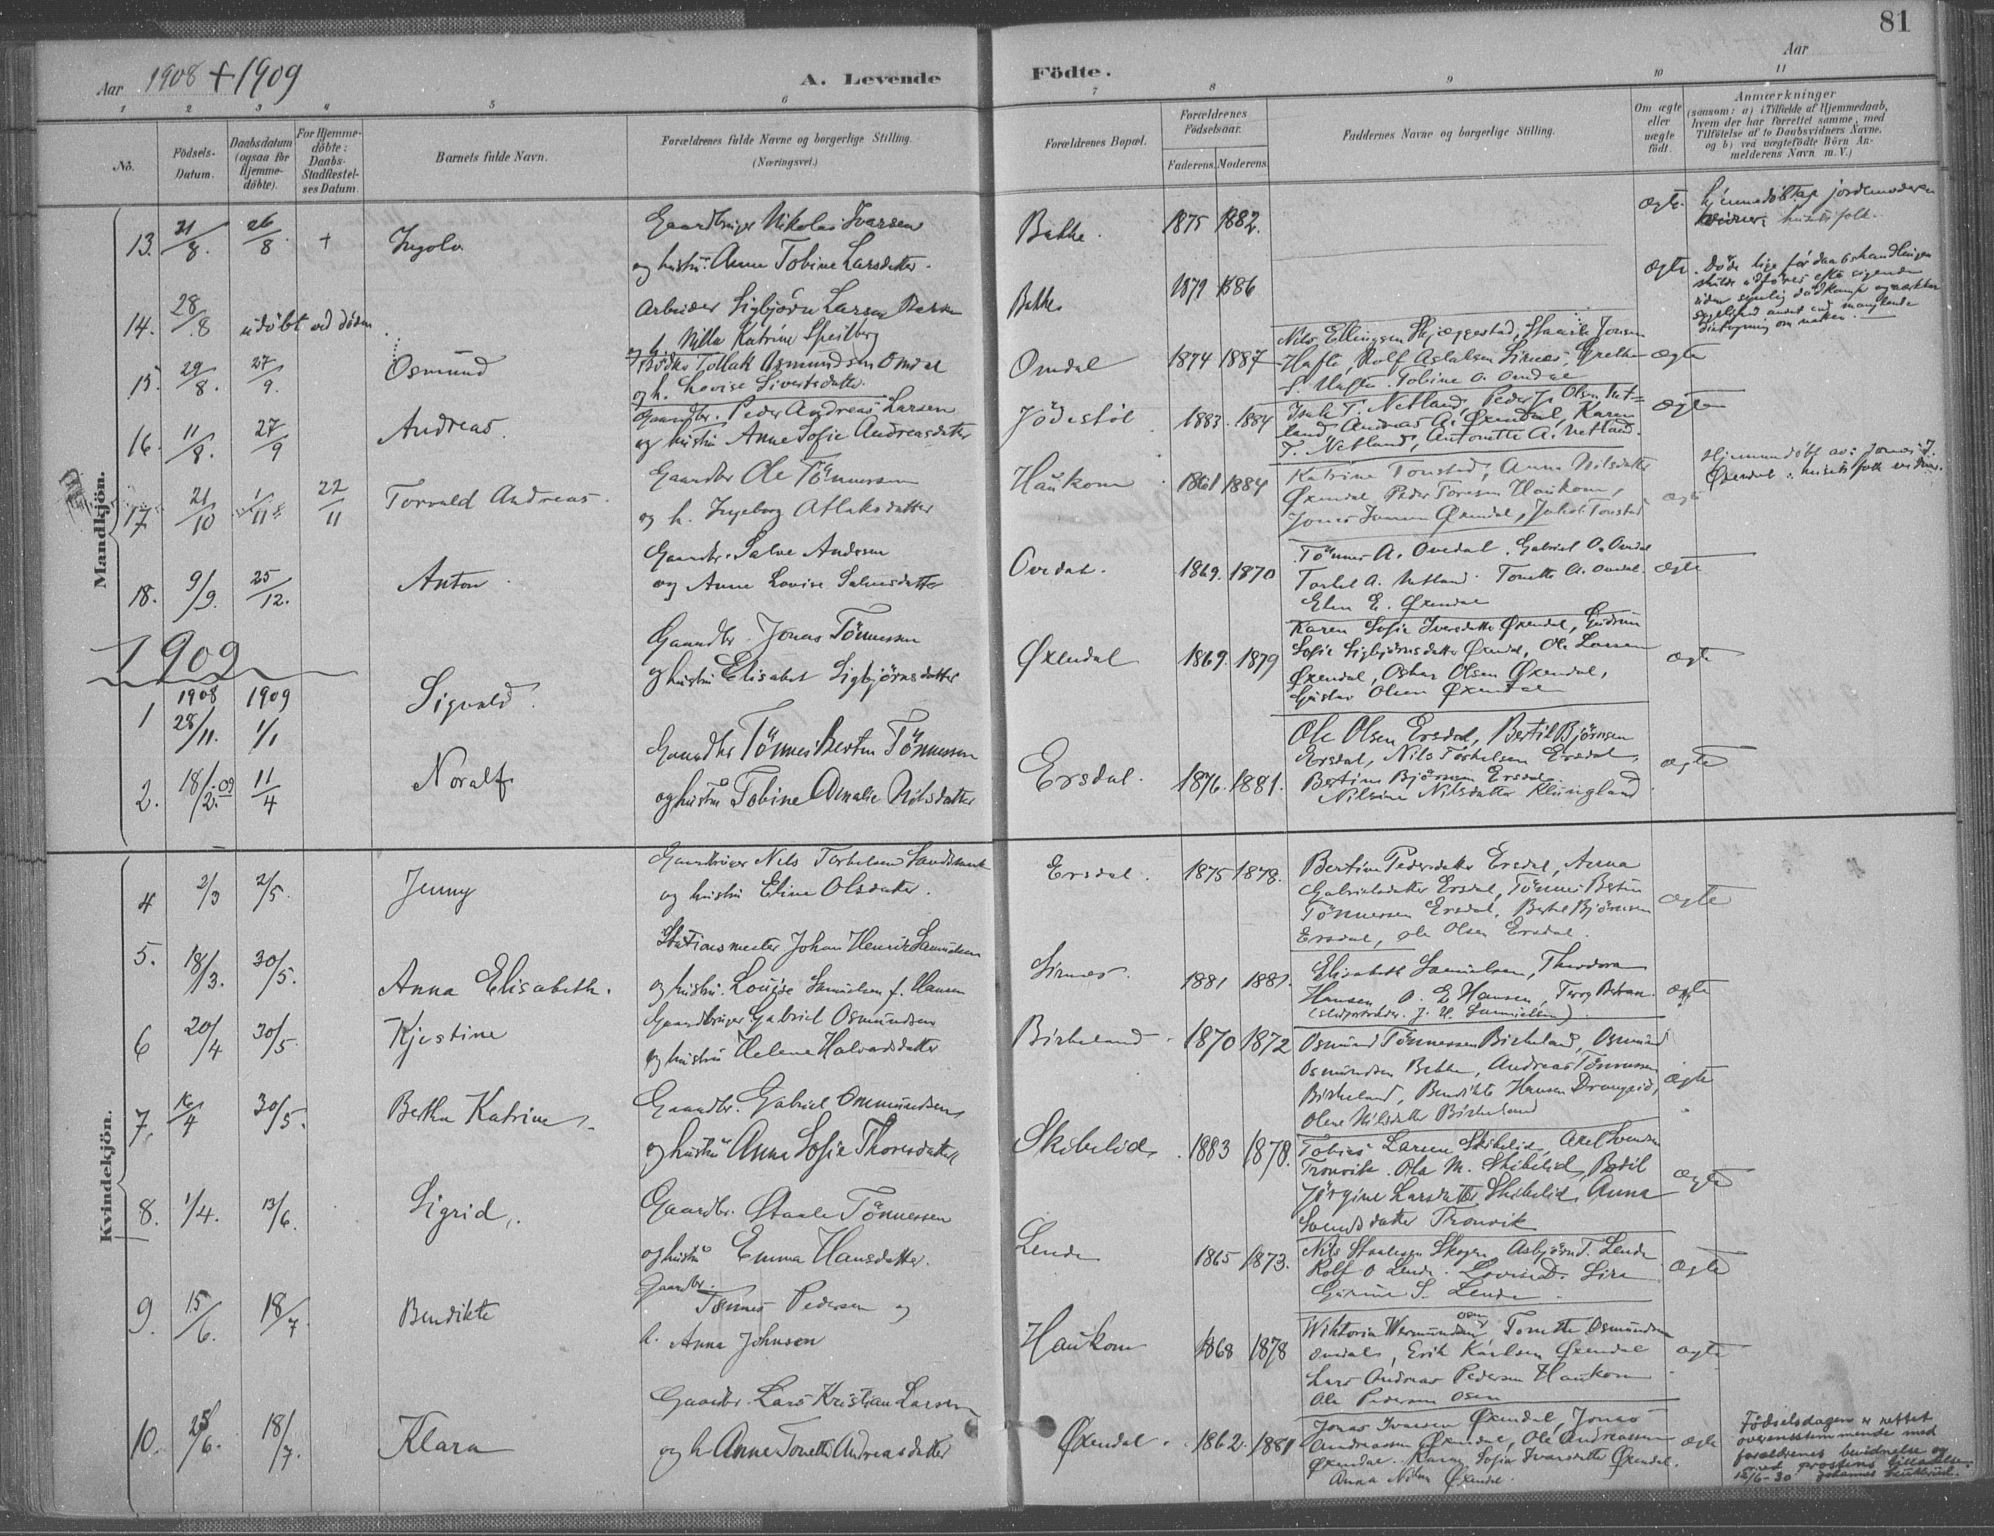 81
Aar 1908 + 1909
A. Levende Födte.
Aar
1 2 3 4 5 6 7 8 9 10 11
No.
Födsels-Datum.
Daabsdatum (ogsaa for Hjemmedöbte).
For Hjemmedöbte: Daabs-Stadfestelses Datum.
Barnets fulde Navn.
Forældrenes fulde Navne og borgerlige Stilling.
(Næringsvei.)
Forældrenes Bopæl.
Forældrenes Födselsaar.
Faderens. Moderens.
Faddernes Navne og borgerlige Stilling.
Om ægte eller uægte födt.
Anmærkninger
(saasom: a) i Tilfælde af Hjemmedaab, hvem der har forrettet samme, med Tilföielse af to Daabsvidners Navne, og b) ved uægtefödte Börn Anmelderens Navn m. V.)
Mandkjön.
13. 21/8. 26/8. + Ingolv
Gaardbruger Nikolai Ivarsen
og hustru Anne Tobine Larsdatter.
Bakke. 1875 1882.
ægte.
hjemmedöbt af jordemoderen
husets folk.
14. 28/8 udöbt ved döden.
Arbeider Sigbjörn Larsen
og h. Katrine
Bakke 1879 1886
ægte. Döde lige för daabshandlingen
15. 29/8. 27/9. Osmund
Tollak Osmundsen Omdal
og h. Lovise Sivertsdatter.
Omdal 1874 1887
Nils Ellingsen Skjæggestad, Staale Jonsen
Hafte, Rolf Aslaksen Sirnes, Grethe
Hafte. Tobine O. Omdal
ægte
16. 11/8. 27/9 Andreas.
Gaardbr. Peder Andreas Larsen
og hustru Anne Sofie Andreasdatter
Jödestöl 1883. 1884
Isak T. Netland, Peder J. Olsen Net=
land Andreas A. Øxendal, Karen
T. Netland, Antonette A. Netland.
ægte
17 21/10 1/11 22/11 Torvald Andreas.
Gaardbr Ole Tönnessen
og h. Ingeborg Atlaksdatter
Haukom 1861 1884
Katrine Tonstad, Anna Nilsdatter
Øxendal, Peder Haukom,
Jonas Øxendal, Jakob Tonstad
ægte
Hjemmedöbt av: Jonas J.
Øxendal: husets folk vidner.
18. 9/9. 25/12. Anton.
Gaardbr. Salve Andersen
og Anne Lovise Salvesdatter
Ovedal. 1869. 1870
Tönnes A. Ovedal. Gabriel O. Ovedal
Torkel A. Netland. Tonette A. Ovedal.
Elen E. Øxendal
ægte
1909
1 1908 28/11. 1909 1/1 Sigvald.
Gaardbr. Jonas Tönnessen
og hustru Elisabet Sigbjörnsdatter
Øxendal 1869. 1879
Karen Sofie Iversdatter Øxendal, Gudrun
Sofie Sigbjörnsdatter Øxendal, Ole Larsen
Øxendal, Oskar Olsen Øxendal,
Gustav Olsen Øxendal
ægte
2. 18/2. 09 11/4 Noralf
Gaardbr Tönnes Bertin Tönnessen
og hustru Tobine Amalie Nilsdatter
Ersdal. 1876. 1881.
Ole Olsen Ersdal, Bertil Björnsen
Ersdal, Nils Torkelsen Ersdal,
Bertine Björnsen Ersdal.
Nilsine Nilsdatter Klungland.
ægte
Kvindekjön.
4 2/3 2/5. Jenny
Gaardbruger Nils Torkelsen Sandsmark
og hustru Eline Olsdatter.
Ersdal. 1875 1878.
Bertine Pedersdatter Ersdal, Anna
Gabrielsdatter Ersdal, Tönnes Bertin
Tönnessen Ersdal, Bertel Björnsen
Ersdal, Ole Olsen Ersdal.
ægte
5. 18/3. 30/5. Anna Elisabeth.
Stationsmester Johan Henrik Samuelsen
og hustru. Louise Samuelsen f. Hansen
Sirnes. 1881 1881.
Elisabeth Samuelsen, Theodora
Hansen, O. E Hansen,
J. H. Samuelsen).
ægte
6 20/4 30/5. Kjestine
Gaardbruger Gabriel Osmundsen
og hustru Helene Halvardsdatter
Birkeland. 1870 1872
Osmund Tönnessen Birkeland, Osmund
Osmundsen Bakke, Andreas Tönnessen
Birkeland, Bendikte Hansen Drangeid,
Olene Nilsdatter Birkeland
ægte
7. 4 30/5. Bertha Katrine
Gaardbr. Gabriel Ommundsen
og hustru Anna Sofie Thoresdatter
Skibelid 1883 1878.
Tobias Larsen Skibelid, Axel Svendsen
Tronvik. Ola M. Skibelid, Bodil
Jörgine Larsdatter Skibelid, Anna
Svendsdatter Tronvik
ægte
8. 1/4. 13/6. Sigrid.
Gaardbr. Staale Tönnessen
og hustru Emma Hansdatter.
Lende 1865 1873.
Nils Staalesen Skogen, Asbjörn T. Lende
Rolf O Lende. Lovise D. Sira
Gurine S. Lende.
ægte
9. 15/6. 18/7. Bendikte
Gaardbr. Tönnes Pedersen og
h. Anna Johnsen
Haukom 1868 1878
Wiktoria Osen, Tonette Osmundsen
Omdal, Erik Karlsen Øxendal
Lars Andreas Pedersen Haukom
Ole Pedersen Osen
ægte
10. 25/6. 18/7. Klara
Gaardbr. Lars Kristian Larsen
og h Anne Tonette Andreasdatter
Øxendal. 1862. 1881
Jonas Ivarsen Øxendal, Jonas
Andreassen Øxendal, Ole Andreassen
Øxendal. Karen Sofie Ivarsdatter Øxendal.
Anna Nilsen Øxendal.
ægte
Födselsdagen er rettet
overensstemmende med
foreldrenes bevidnelse og
med prostens tilladelse.
15/6-30 Johannes